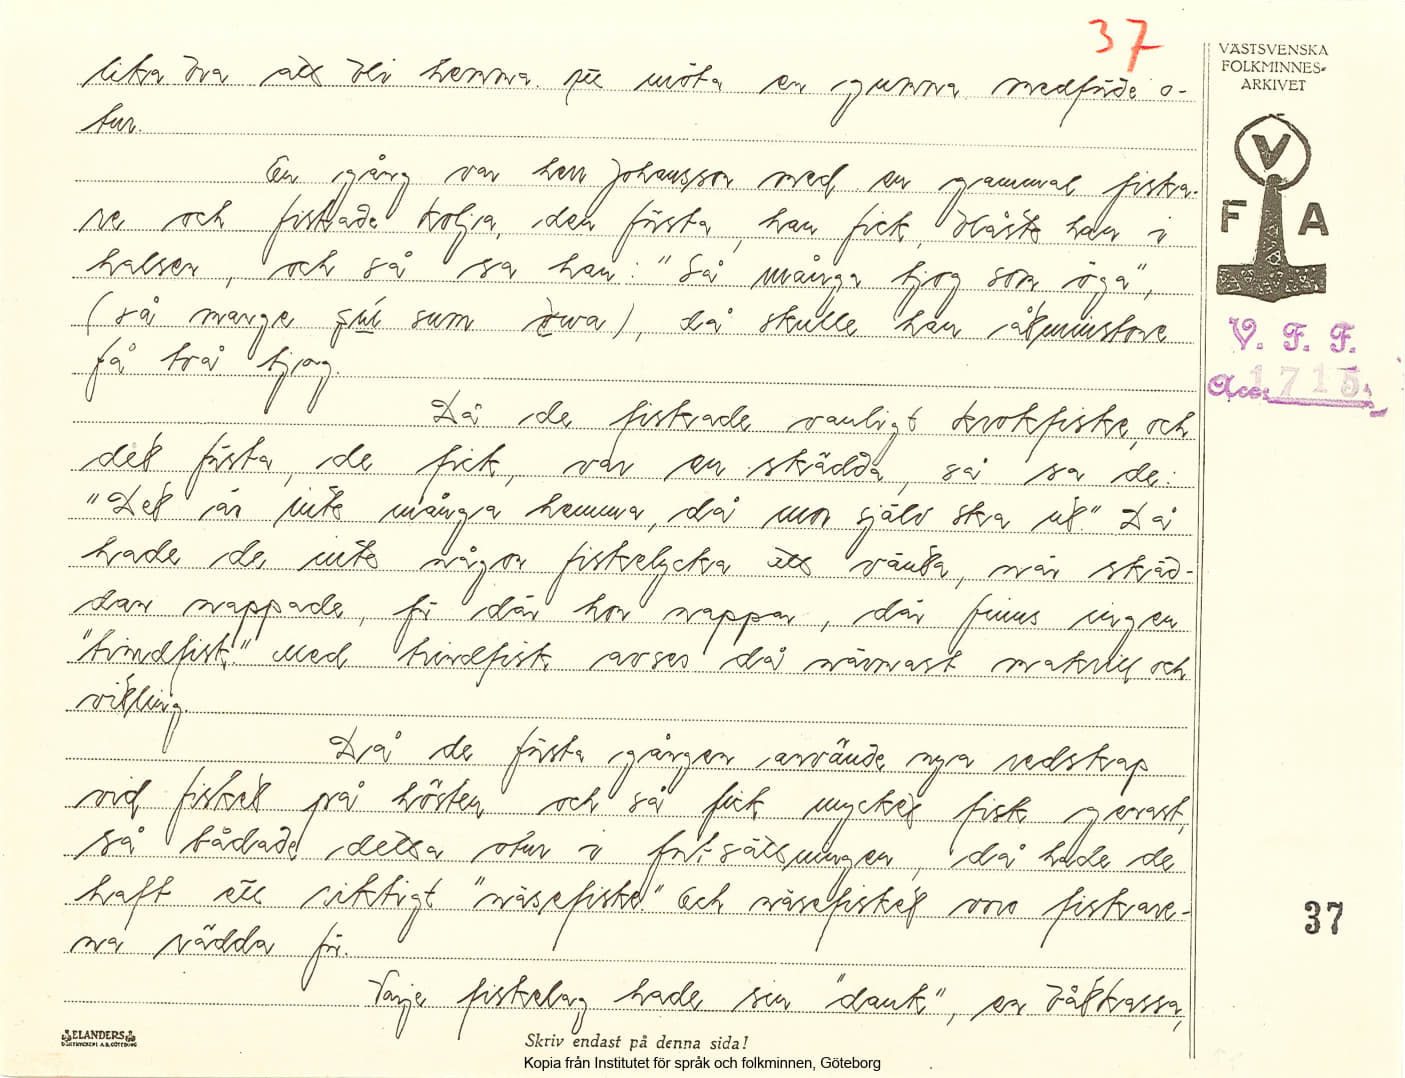 37
VÄSTSVENSKA
FOLKMINNES-
ARKIVET
V
F A
V. F. F.
Acc. 1715.
lika bra att bli hemma. att möta en gumma medförde o-
tur.
En gång var herr Johansson med en gammal fiska-
re och fiskade kolja, den första, han fick, blåste han i
halsen, och så sa han: "Så många tjog som öga",
(så mange som), då skulle han åtminstone
få två tjog.
Då de fiskade vanligt krokfiske, och
det första, de fick, var en skädda, så sa de:
"Det är inte många hemma, då mor själv ska ut." Då
hade de inte någon fiskelycka att vänta, när skäd-
dan nappade, för där hon nappar, där finns ingen
"trindfisk." Med trindfisk avses då närmast makrill och
vitling.
Då de första gången använde nya redskap
vid fisket på hösten och så fick mycket fisk genast,
så bådade detta otur i fortsättningen, då hade de
haft ett riktigt "näsefiske." Och näsefisket voro fiskare-
na rädda för.
Varje fiskelag hade sin "dank", en båtkassa,
37
ELANDERS
BOKTRYCKERI A.B. GÖTEBORG
Skriv endast på denna sida!
Kopia från Institutet för språk och folkminnen, Göteborg